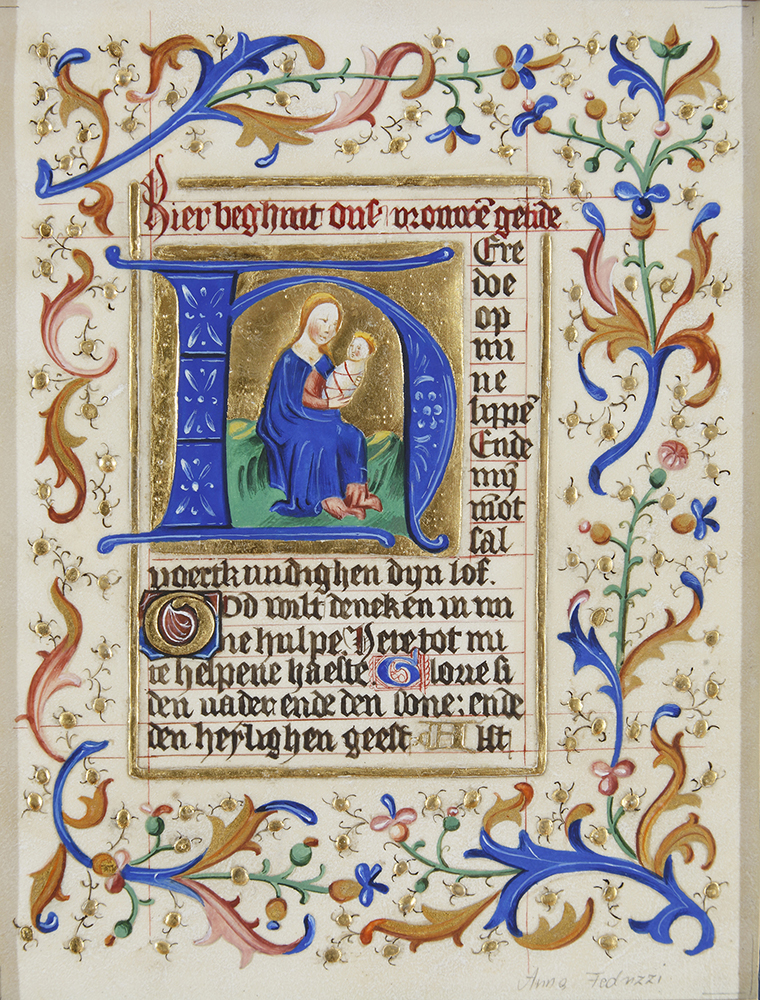 Hier beghint ons vrouwē getide
Ere
doe
op
mi
ne
lyppē
Ende
mȳ
mōt
sal
voertkundighen dyn lof.
God wilt dencken in mi
ne hulpe. Here tot mi
te helpene haeste Glorie si
den vader ende den sone: ende
den heylighen geest Alst
Anna Fedrizzi